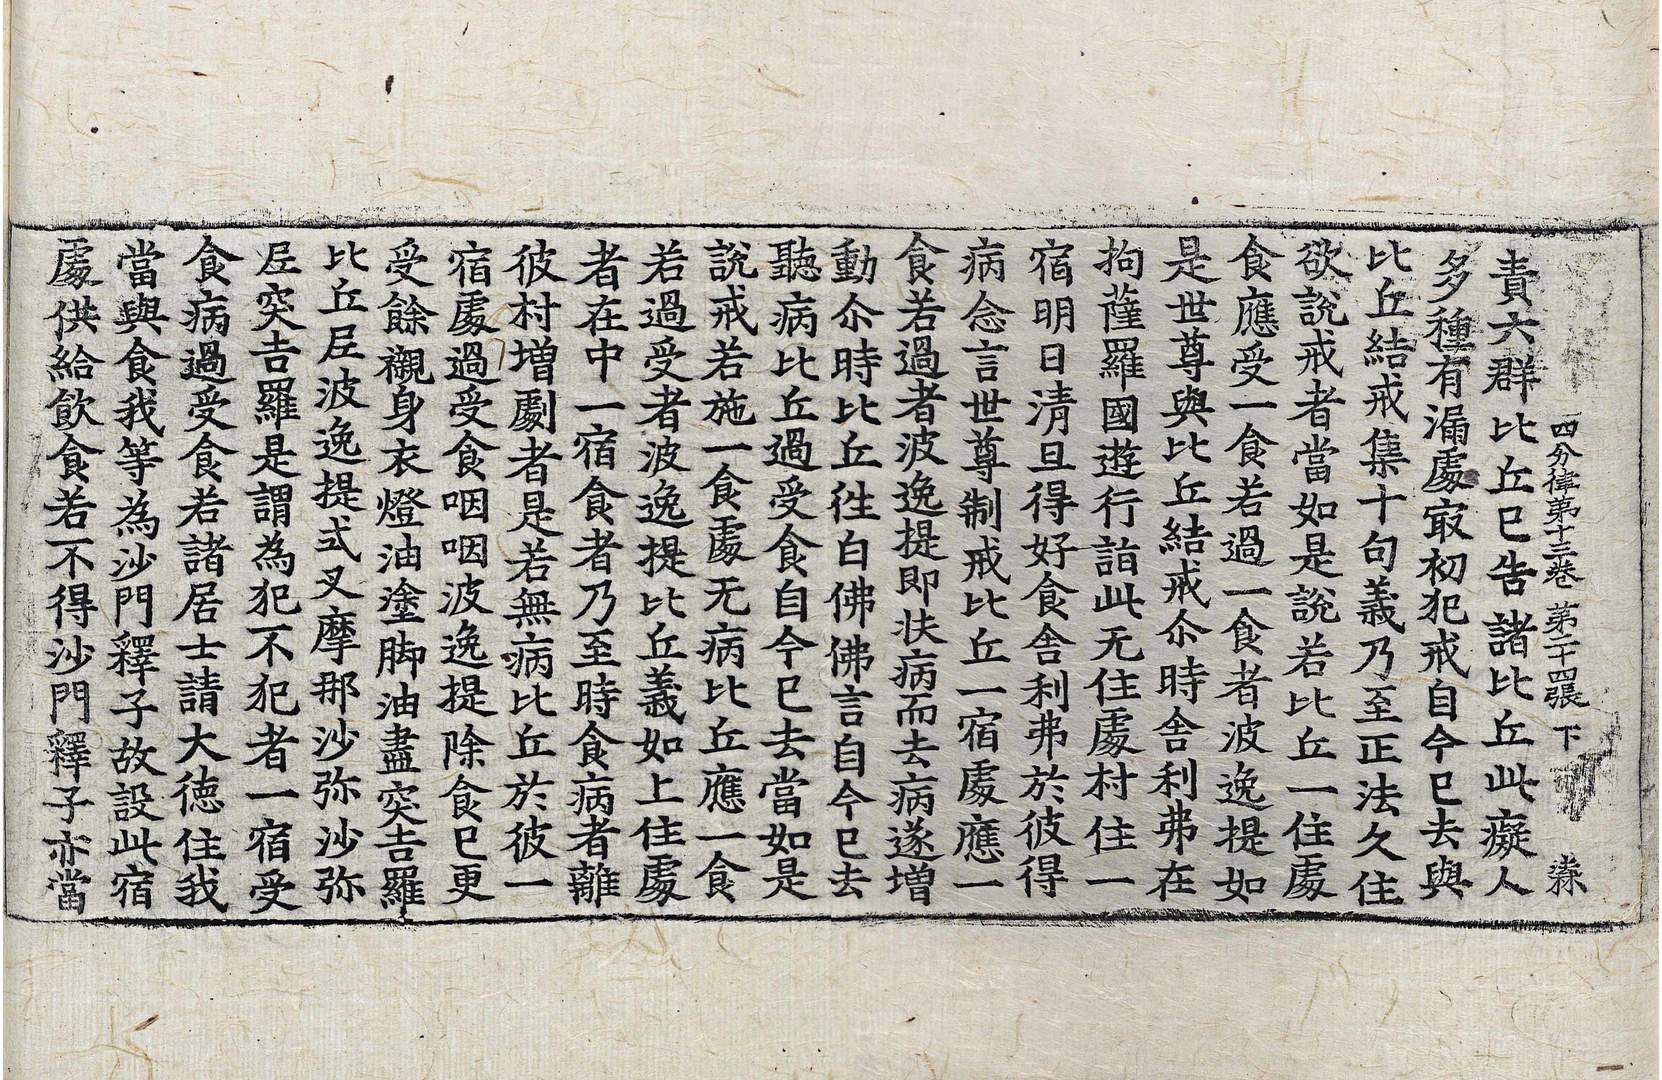 四分律第十三卷 第二十四張 下 㴑
責六群比丘已告諸比丘此癡人
多種有漏處㝡初犯戒自今已去與
比丘結戒集十句義乃至正法久住
欲說戒者當如是說若比丘一住處
食應受一食若過一食者波逸提如
是世尊與比丘結戒尒時舍利弗在
拘薩羅國遊行詣此无住處村住一
宿明日清旦得好食舍利弗於彼得
病念言世尊制戒比丘一宿處應一
食若過者波逸提即扶病而去病遂增
動尒時比丘徃白佛佛言自今已去
聽病比丘過受食自今已去當如是
說戒若施一食處无病比丘應一食
若過受者波逸提比丘義如上住處
者在中一宿食者乃至時食病者離
彼村增劇者是若無病比丘於彼一
宿處過受食咽咽波逸提除食已更
受餘襯身衣燈油塗脚油盡突吉羅
比丘尼波逸提式叉摩那沙弥沙弥
尼突吉羅是謂為犯不犯者一宿受
食病過受食若諸居士請大德住我
當與食我等為沙門釋子故設此宿
處供給飲食若不得沙門釋子亦當